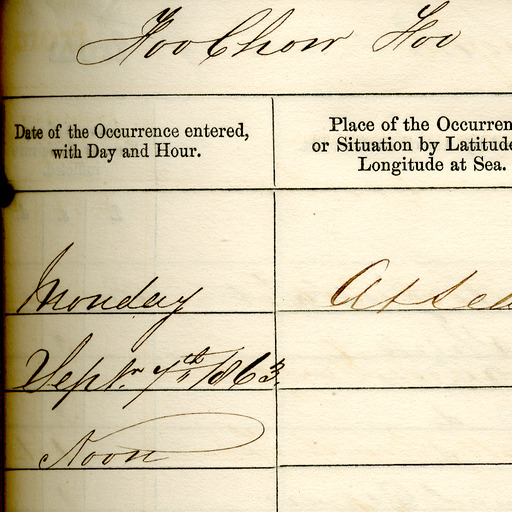 FooChow Foo
Date of the Occurrence entered,
with Day and Hour.
Place of the Occurren
or Situation by Latitude
Longitude at Sea.
Monday
At Sea
Septr. 7th 1863
Noon